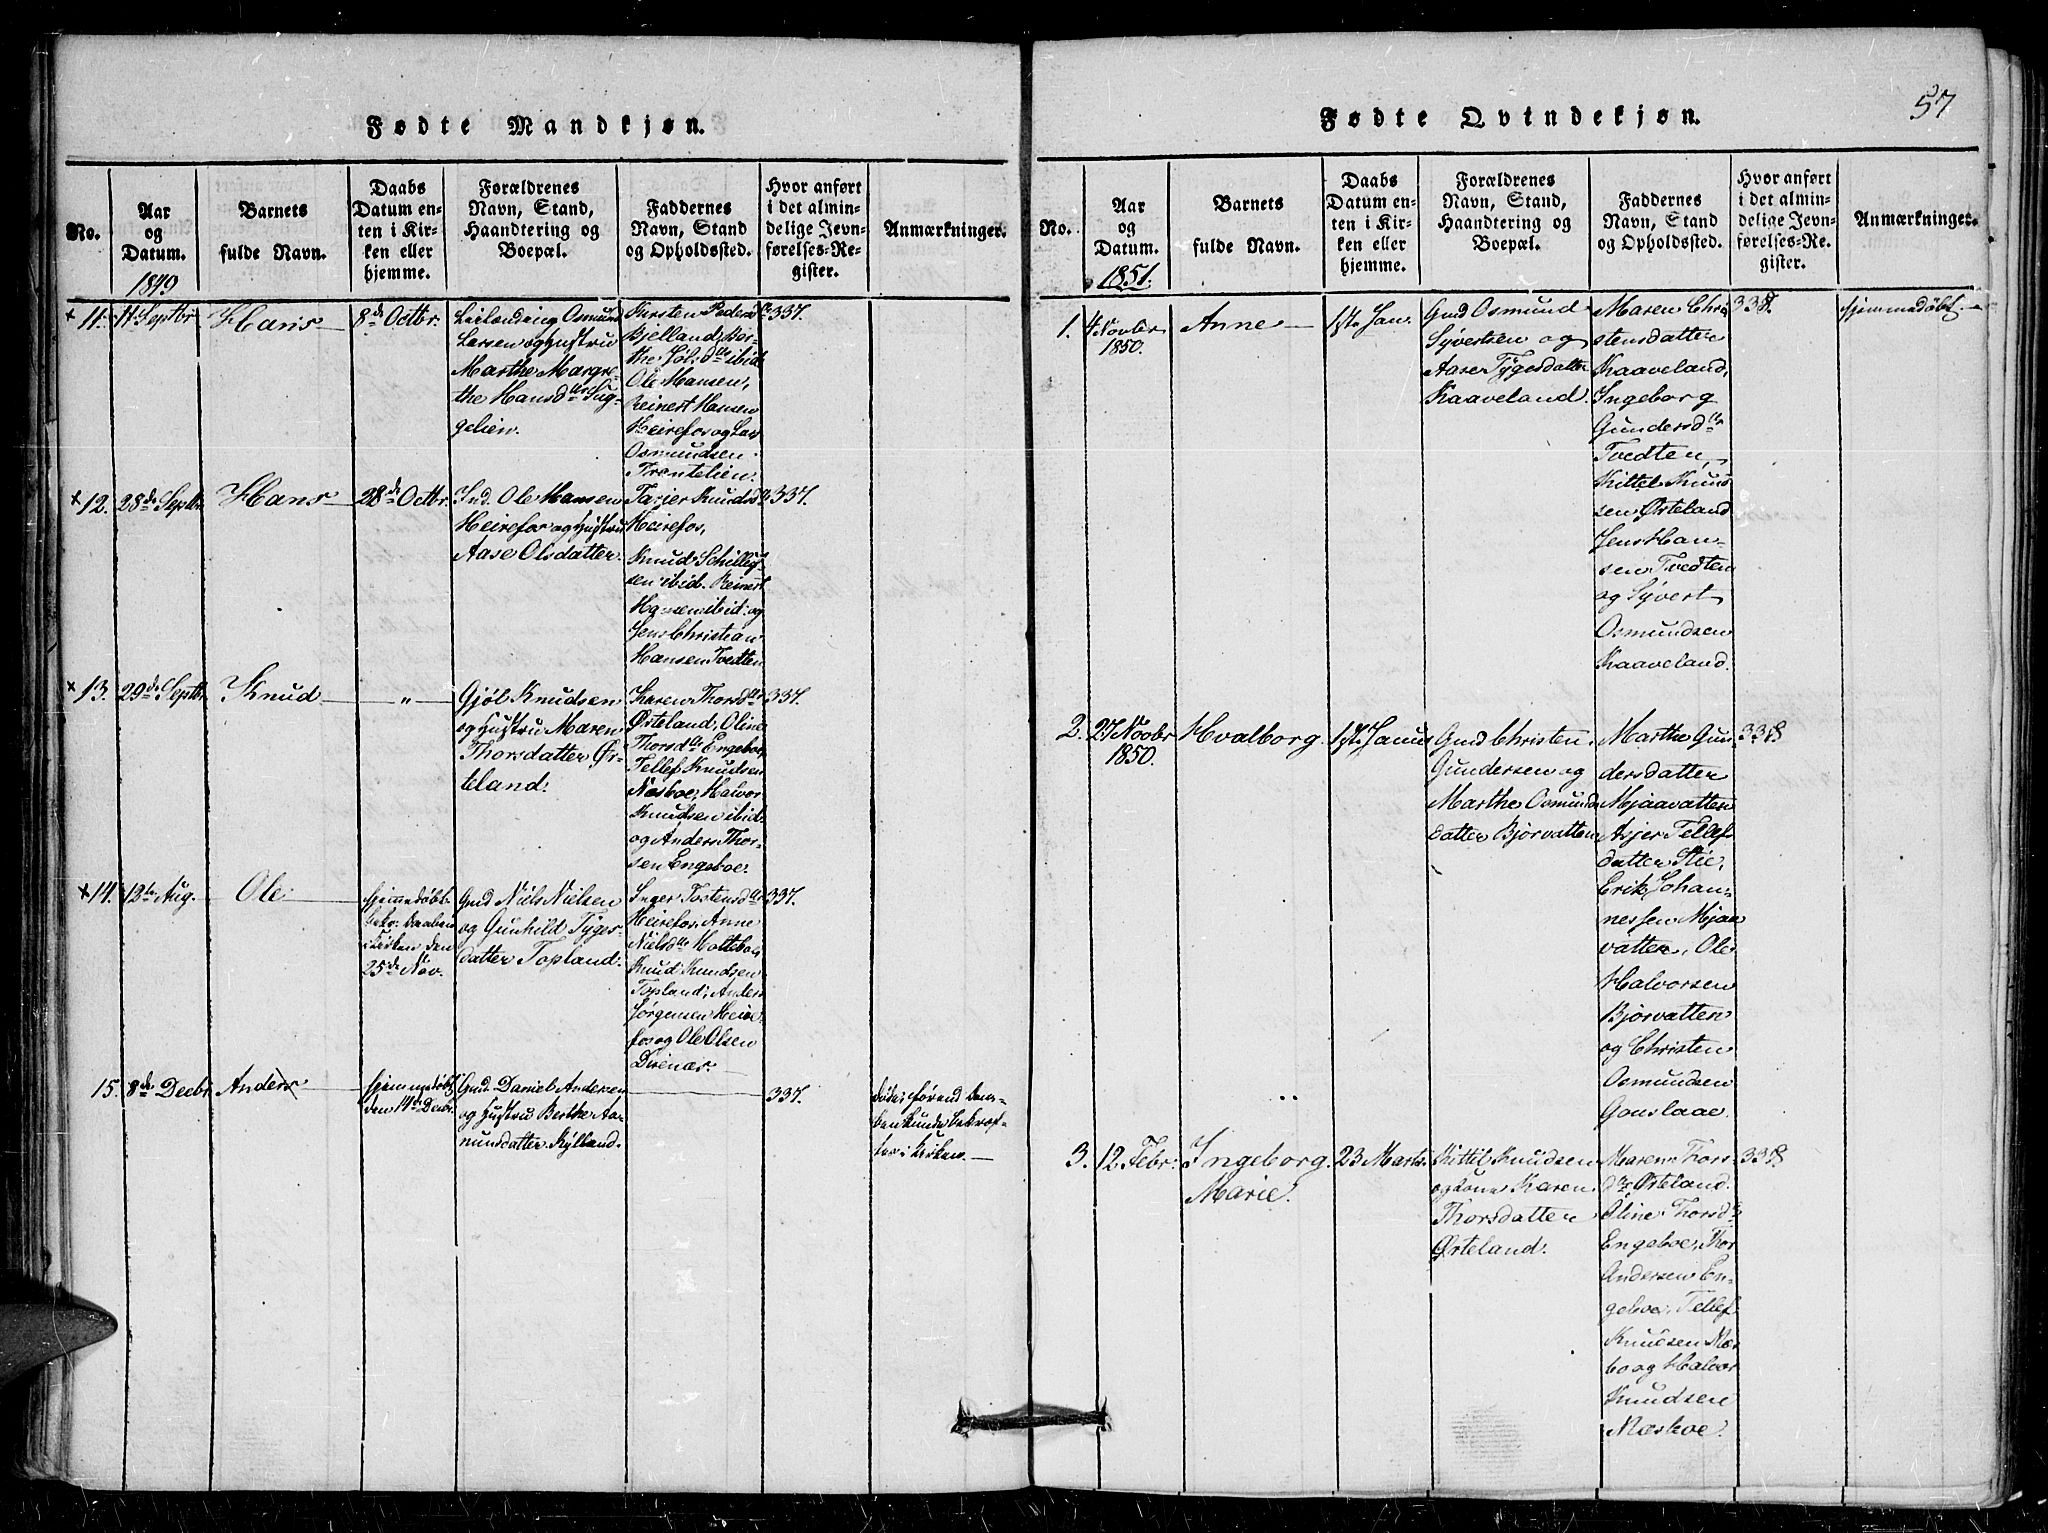 57
Fødte Mandkjøn.
No.
Aar
og
Datum.
Barnets
fulde Navn.
Daabs
Datum en-
ten i Kir-
ken eller
hjemme.
Forældrenes
Navn, Stand,
Haandtering og
Boepæl.
Faddernes
Navn, Stand
og Opholdssted.
Hvor anført
i det almin-
delige Jevn-
førelses-Re-
gister.
Anmærkninger.
1849
× 11.
11 Septbr
Hans
8de Octbr.
Osmund
Larsen og Hustru
Marthe Margre-
the Hansdtr Sug-
gelien.
Kjelland, Dor-
the ibid
Ole Hansen,
Reinert Hansen
Heirefos og Lars
Osmundsen
Trontelien.
337.
× 12.
28de Septbr.
Hans
28de Octbr.
Ind. Ole Hansen
Heirefos og Hustru
Aase Olsdatter.
Tarjer Knudsd
Heirefos,
Knud
sen ibid. Reinert
Hansen ibid: og
Jens Christian
Hansen Tvedten
337.
× 13.
29de Septbr.
Knud
"
Gjøl Knudsen
og Hustru Maren
Thorsdatter Ør-
teland.
Karen Thorsdtr
Ørteland, Oline
Thorsdtr Engeboe,
Tellef Knudsen
Næsboe, Halvor
Knudsen ibid.
og Anders Thor-
sen Engeboe.
337.
× 14.
12te Aug.
Ole
hjemmedøbt.
Daaben
i Kirken den
25de Nov.
Gmd Niels Nielsen
og Gunhild Tyges-
datter Topland.
Inger Tostensdtr
Heirefos, Anne
Nielsdtr Holteboe
Knud Knudsen
Topland, Anders
Jørgensen Heire-
fos og Ole Olsen
Direnæs.
337.
15.
8de Decbr
Anders
hjemmedøbt
den 14de Decbr.
Gmd. Daniel Andersen
og Hustru Berthe Aa-
nunsdatter Kylland.
337.
døde førend Daa-
ben kunde bekræf-
tes i Kirken.
Fødte Qvindekjøn.
No.
Aar
og
Datum.
Barnets
fulde Navn.
Daabs
Datum en-
ten i Kir-
ken eller
hjemme.
Forældrenes
Navn, Stand,
Haandtering og
Boepæl.
Faddernes
Navn, Stand
og Opholdssted.
Hvor anført
i det almin-
delige Jevn-
førelses-Re-
gister.
Anmærkninger.
1851.
1.
4 Novbr
1850.
Anne
1ste Jan.
Gmd Osmund
Syvertsen og
Aase Tygesdatter
Kaaveland.
Maren Chri-
stensdatter
Kaaveland,
Ingeborg
Gundersdtr
Tvedten,
Kittel Knud-
sen Ørteland
Jens Han-
sen Tvedten
og Syvert
Osmundsen
Kaaveland.
338.
hjemmedøbt.
2.
27 Novbr
1850.
Hvalborg
1ste Januar
Gmd Christen
Gundersen og
Marthe Osmunds-
datter Bjorvatten
Marthe Gun-
dersdatter
Mjaavatten
Asjer Tellefs-
datter Stie,
Erik Johan-
nessen Mjaa-
vatten, Ole
Halvorsen
Bjorvatten
og Christen
Osmundsen
Gonslaae.
338
"
3.
12 Febr.
Ingeborg
Marie.
23 Marts
Kittil Knudsen
og Kone Karen
Thorsdatter
Ørteland.
Maren Thors-
dtr Ørteland.
Oline Thorsdtr
Engeboe, Thor
Andersen En-
geboe, Tellef
Knudsen Næs-
bo og Halvor
Knudsen
Næsboe.
338